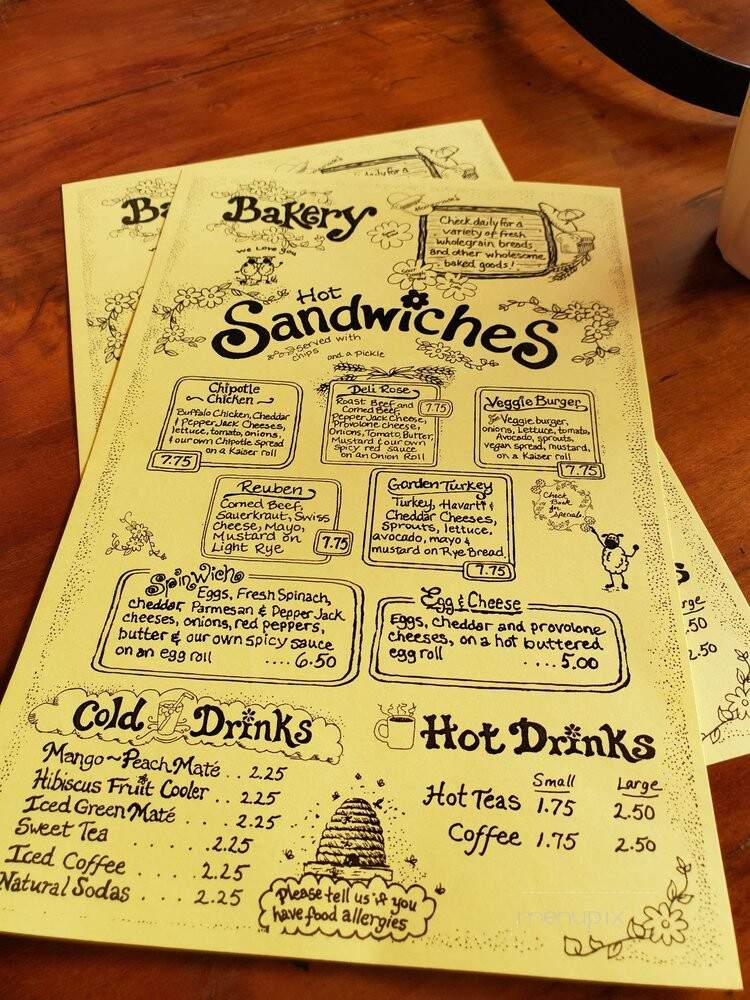 Bakery
We Love you
Check daily for a
variety of fresh
wholegrain breads
and other wholesome
baked goods!
Hot
Sandwiches
served with
chips and a pickle
Chipotle
Chicken
Buffalo Chicken, Cheddar
& Pepper Jack Cheeses,
lettuce, tomato, onions,
& our own Chipotle Spread
on a Kaiser roll
7.75
Deli Rose
Roast Beef and
Corned Beef,
Pepper Jack Cheese,
Provolone cheese,
Onions, Tomato, Butter,
Mustard & our own
spicy red sauce
on an Onion Roll
7.75
Veggie Burger
Veggie burger,
onions, Lettuce, tomato,
Avocado, sprouts,
vegan spread, mustard,
on a Kaiser roll
7.75
Reuben
Corned Beef,
Sauerkraut, Swiss
cheese, Mayo,
Mustard on
Light Rye
7.75
Garden Turkey
Turkey, Havarti &
Cheddar Cheeses,
Sprouts, lettuce,
avocado, mayo &
mustard on Rye Bread
7.75
Check
Book
for
Specials
Spinwich
Eggs, Fresh Spinach,
cheddar, Parmesan & Pepper Jack
cheeses, onions, red peppers,
butter & our own spicy sauce
on an egg roll .... 6.50
Egg & Cheese
Eggs, cheddar and provolone
cheeses, on a hot buttered
egg roll .... 5.00
Cold Drinks
Mango~Peach Maté .. 2.25
Hibiscus Fruit Cooler .. 2.25
Iced Green Maté .... 2.25
Sweet Tea ...... 2.25
Iced Coffee .... 2.25
Natural Sodas .... 2.25
Please tell us if you
have food allergies
Hot Drinks
Small Large
Hot Teas 1.75 2.50
Coffee 1.75 2.50
menupix
Ba
rge
2.50
2.50